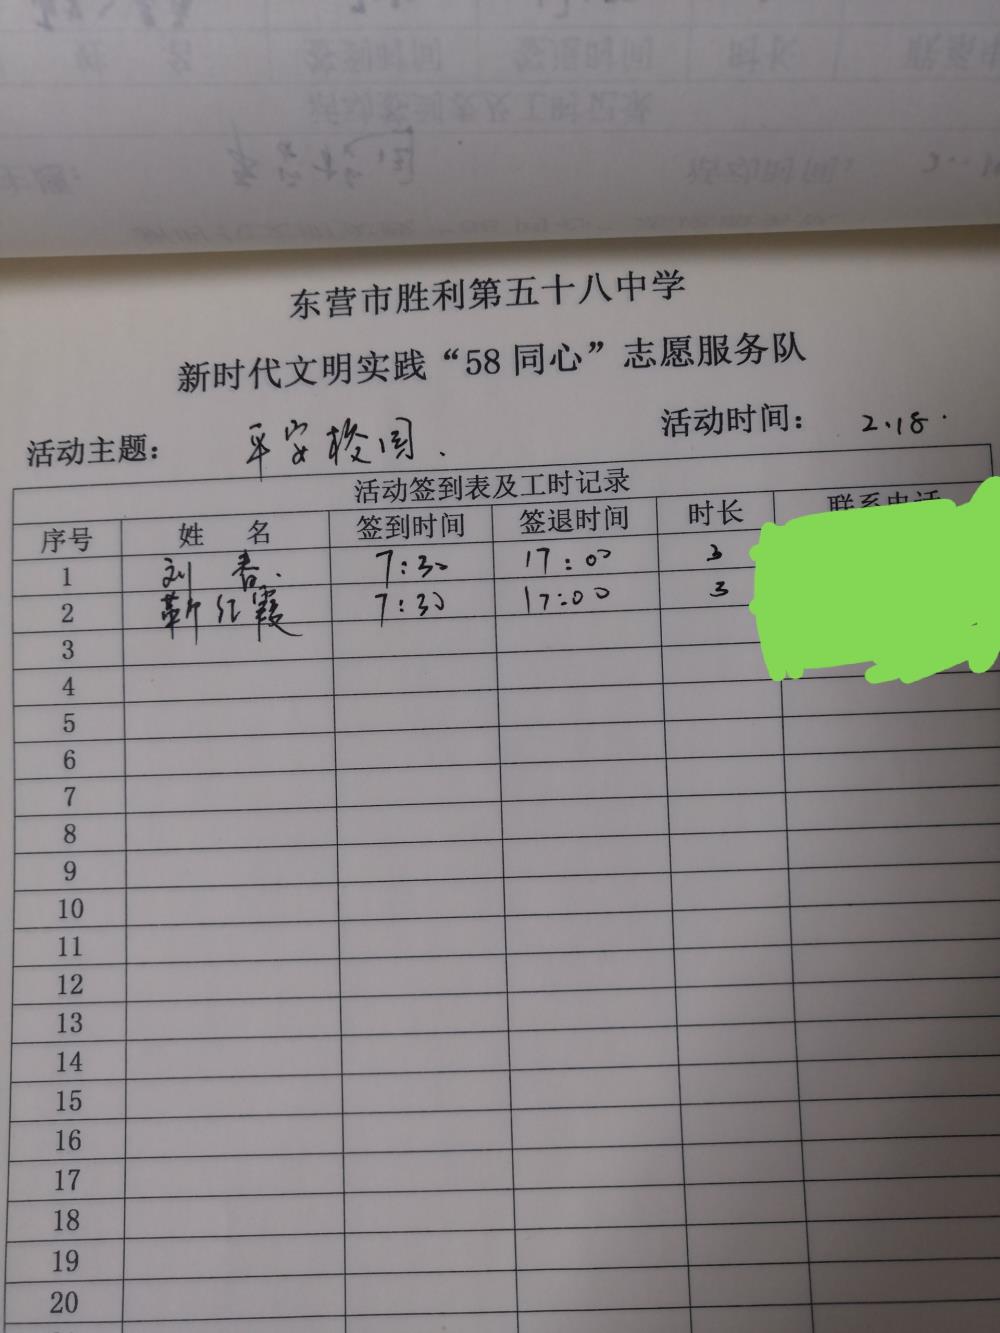 东营市胜利第五十八中学
新时代文明实践“58同心”志愿服务队
活动主题： 平安校园. 活动时间： 2.18.
活动签到表及工时记录
序号 姓 名 签到时间 签退时间 时长 联系电话
1 刘春. 7:30 17:00 3
2 靳红霞 7:30 17:00 3
3
4
5
6
7
8
9
10
11
12
13
14
15
16
17
18
19
20